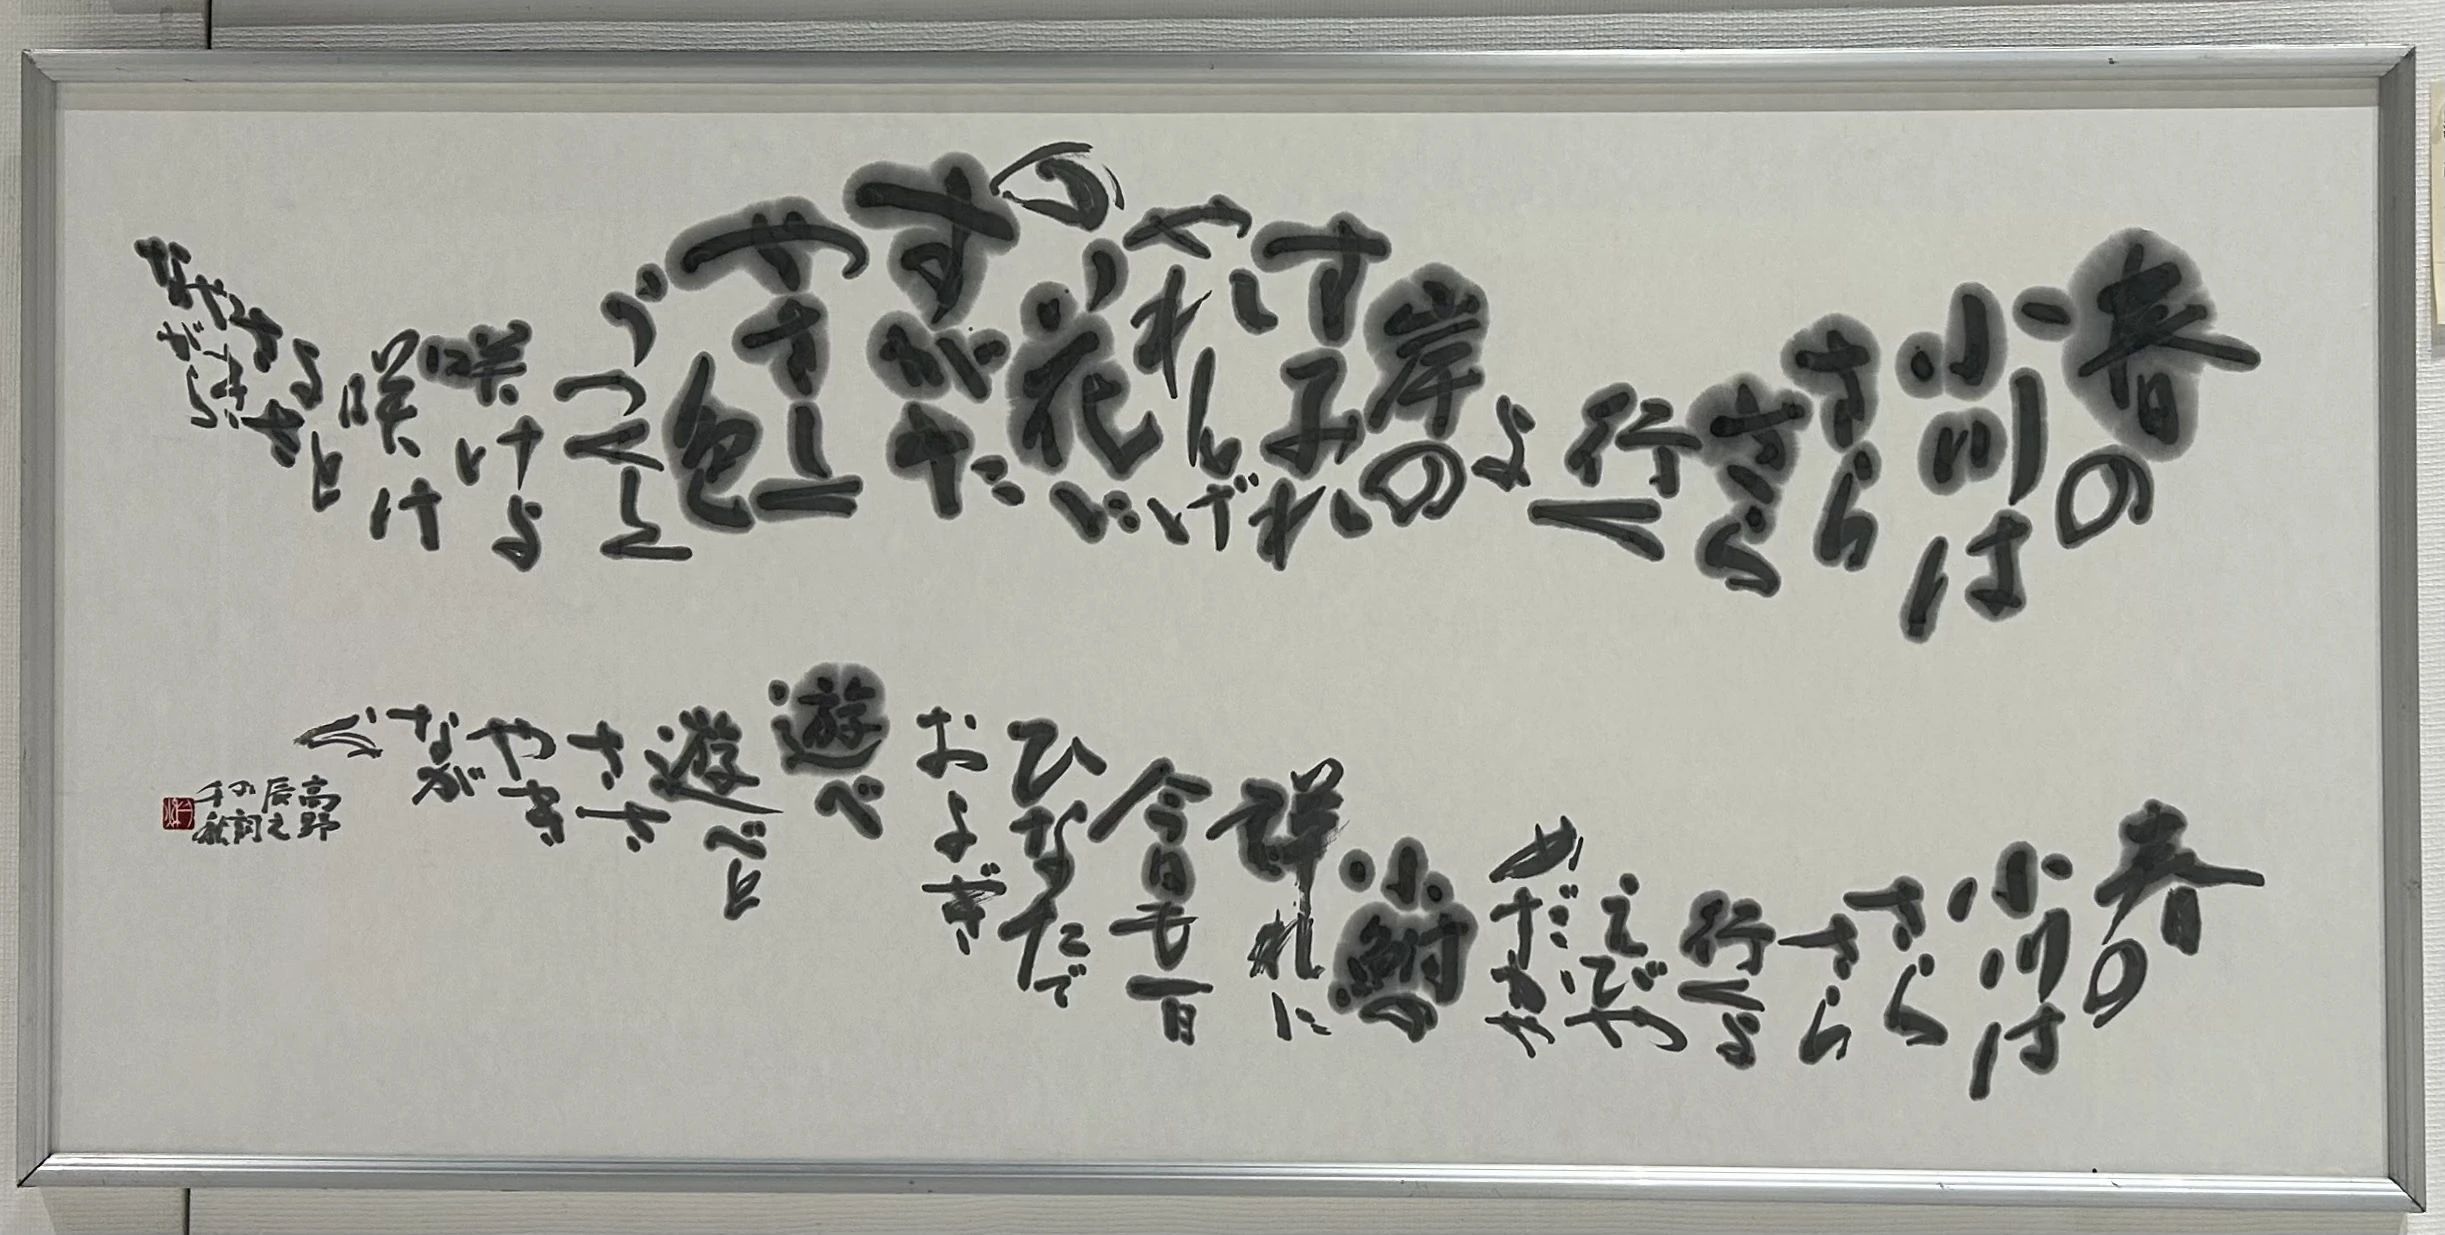 春の
小川は
さら
さら
行く
よ
岸の
すみれ
や
れんげ
の
花に
すがた
やさしく
色
うつくしく
咲けよ
咲け
よと
ささ
やき
ながら
春の
小川は
さら
さら
行くよ
えびや
めだかや
小鮒の
群れに
今日も一日
ひなたで
およぎ
遊べ
遊べと
ささ
やき
なが
ら
高野
辰之
の詞